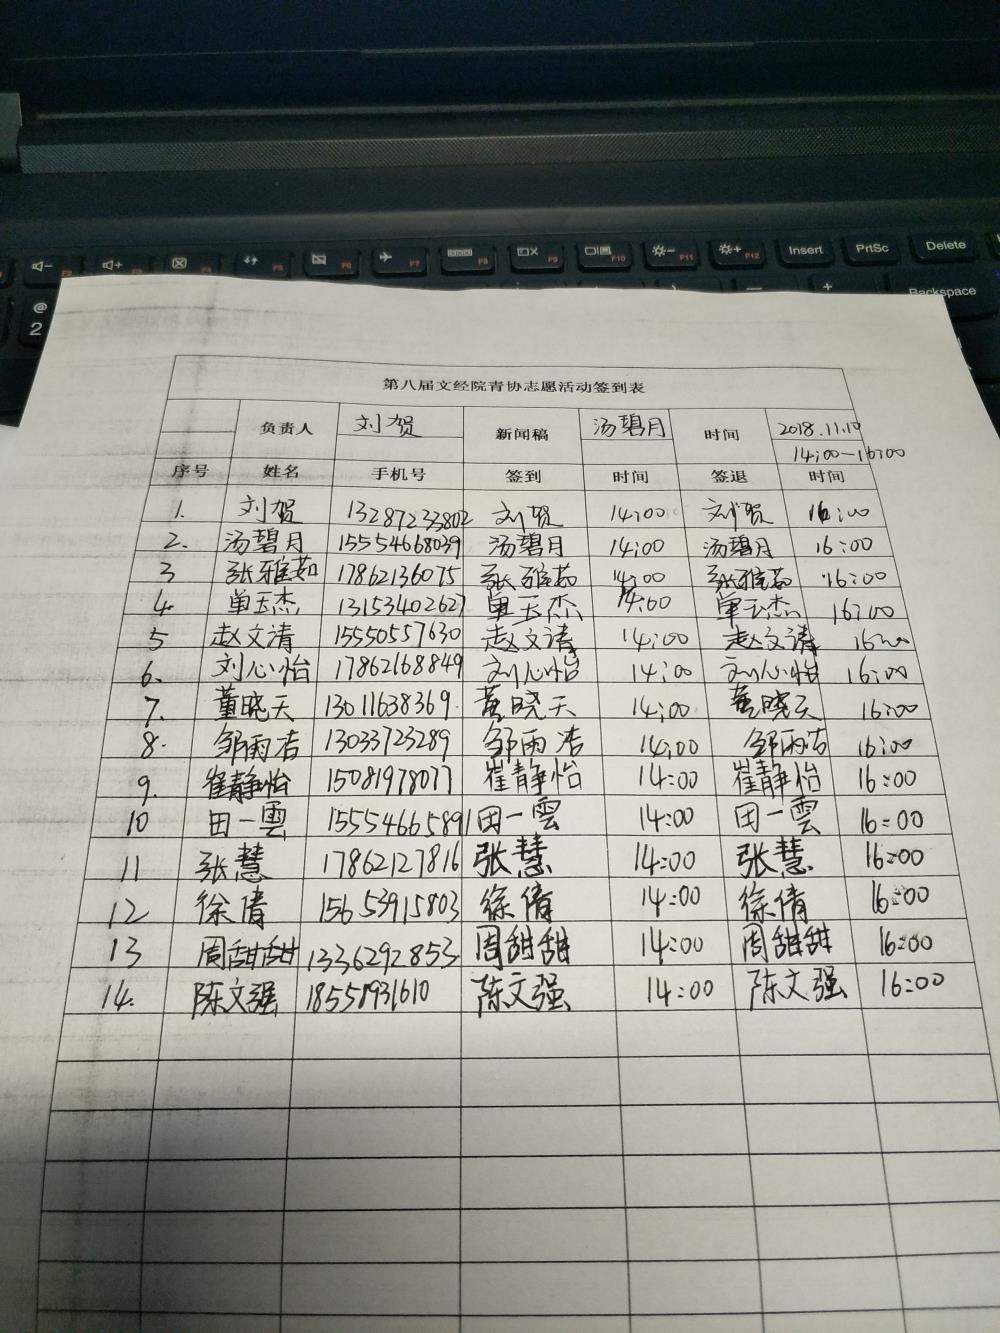 Insert PrtSc Delete
Backspace
@
2
第八届文经院青协志愿活动签到表
负责人 刘贺 新闻稿 汤碧月 时间 2018.11.10
14:00-16:00
序号 姓名 手机号 签到 时间 签退 时间
1. 刘贺 13287233802 刘贺 14:00 刘贺 16:00
2. 汤碧月 15554668039 汤碧月 14:00 汤碧月 16:00
3 张雅茹 17862136075 张雅茹 14:00 张雅茹 16:00
4. 单玉杰 13153402627 单玉杰 14:00 单玉杰 16:00
5 赵文清 15550557630 赵文涛 14:00 赵文涛 16:00
6. 刘心怡 17862168849 刘心怡 14:00 刘心怡 16:00
7. 董晓天 13011638369. 董晓天 14:00 董晓天 16:00
8. 邹雨洁 13033723289 邹雨洁 14:00 邹雨洁 16:00
9. 崔静怡 15081978077 崔静怡 14:00 崔静怡 16:00
10 田一雲 15554665891 田一雲 14:00 田一雲 16:00
11 张慧 17862127816 张慧 14:00 张慧 16:00
12 徐倩 15653915803 徐倩 14:00 徐倩 16:00
13 周甜甜 1336292853 周甜甜 14:00 周甜甜 16:00
14. 陈文强 18558931610 陈文强 14:00 陈文强 16:00